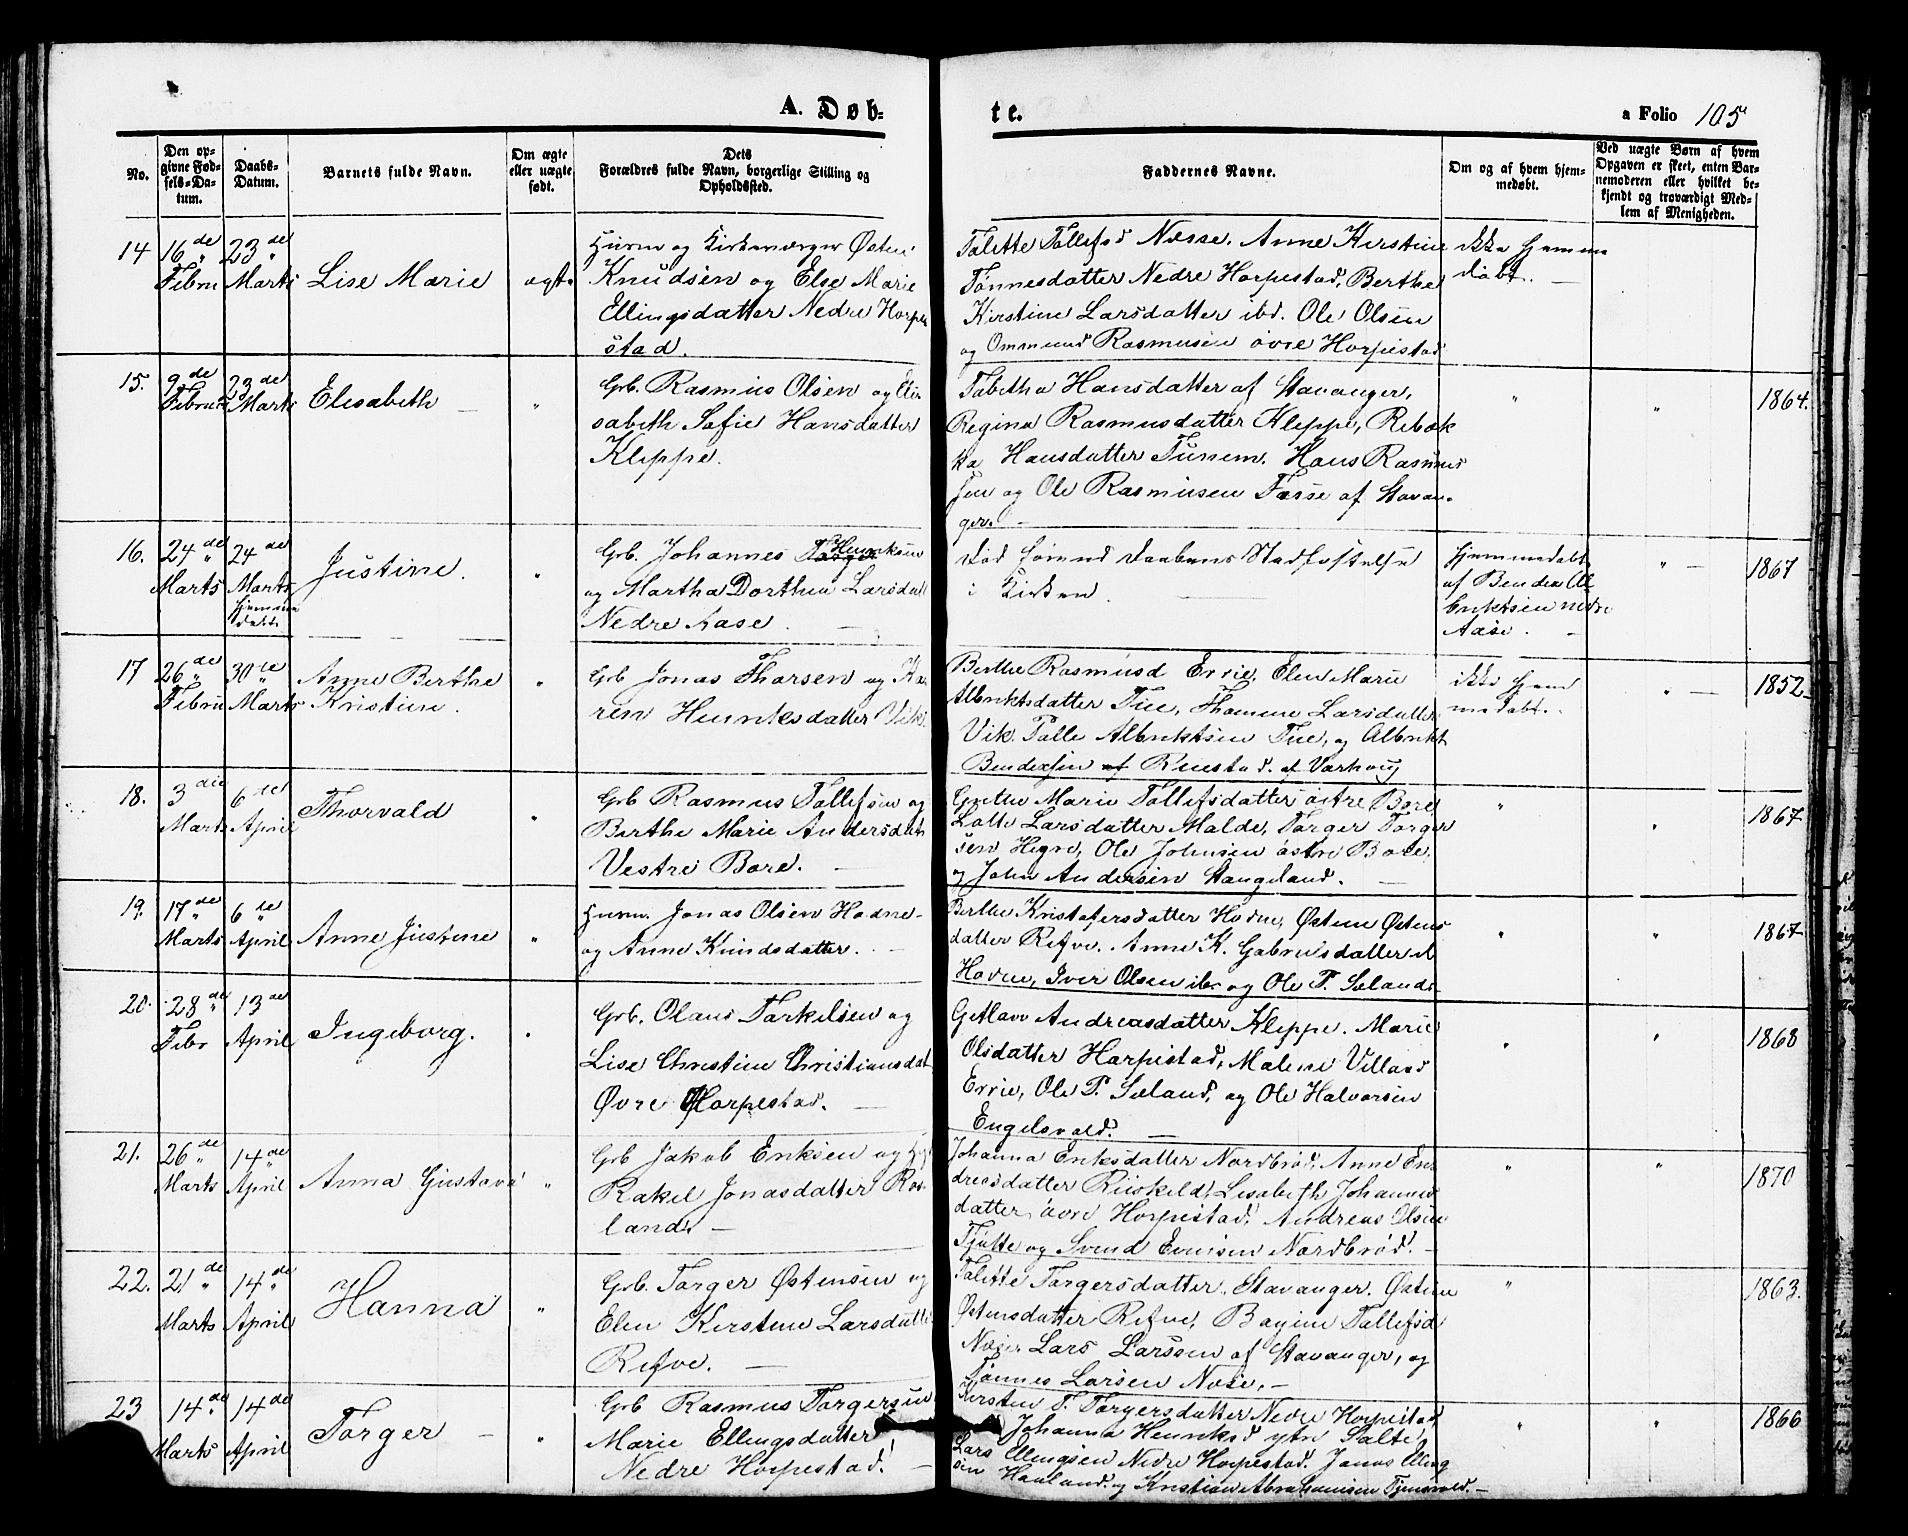 A. Døb-
te.
a Folio 105
No.
Den op-
givne Fød-
sels-Da-
tum.
Daabs-
Datum.
Barnets fulde Navn.
Om ægte
eller uægte
født.
Dets
Forældres fulde Navn, borgerlige Stilling og
Opholdssted.
Faddernes Navne.
Om og af hvem hjem-
medøbt.
Ved uægte Børn af hvem
Opgaven er skeet, enten Bar-
nemoderen eller hvilket be-
kjendt og troværdigt Med-
lem af Menigheden.
14
16de
Febru
23de
Marts
Lise Marie
ægt.
Huusm og Kirkeværger Østen
Knudsen og Else Marie
Ellingsdatter Nedre Horpe
stad.
Talette Tollefsd Næsse, Anne Kirstine
Tønnesdatter Nedre Horpestad, Berthe
Kirstine Larsdatter ibd. Ole Olsen
og Ommund Rasmusen øvre Horpestad
ikke hjemme
døbt.
15.
9de
Febru
23de
Marts
Elisabeth
"
Grb. Rasmus Olsen og Eli
sabeth Sofie Hansdatter
Kleppe.
Tabitha Hansdatter af Stavanger,
Regina Rasmusdatter Kleppe, Rebek
ka Hansdatter Tunem. Hans Rasmus
sen og Ole Rasmusen Tarse af Stavan-
ger.
"
"
1864.
16.
24de
Marts
24de
Marts
hjemme
døbt
Justine.
"
Grb. Johannes Henriksen
og Martha Dorthea Larsdatt
Nedre Aase.
død førend Daabens Stadfæstelse
i Kirken.
hjemmedøbt
af Bendix Al
briktsen nedre
Aase.
"
1867
17
26de
Febru
30te
Marts
Anne Berthe
Kristine.
"
Grb Jonas Tharsen og Ka
ren Henriksdatter Vik.
Berthe Rasmusd Errie, Elen Marie
Albriktsdatter Tue, Thomine Larsdatter
Vik. Talle Albriktsen Tue, og Albrikt
Bendixsen af Ruestad. af Varhoug
ikke hjem
medøbt.
"
1852
18.
3die
Marts
6te
April
Thorvald
"
Grb Rasmus Tollefsen og
Berthe Marie Andersdatt
Vestre Bore.
Grethe Marie Tollefsdatter østre Bore,
Lotte Larsdatter Malde, Torger Torger
sen Hegre, Ole Johnsen østre Bore,
og John Andersen Stangeland.
"
"
1867
19.
17de
Marts
6te
April
Anne Justine
"
Huusm. Jonas Olsen Hodne
og Anne Knudsdatter.
Berthe Kristofersdatter Hodne, Østine Østens
datter Refve. Anne K. Gabrielsdatter
Hodne, Iver Olsen ibd og Ole P. Sælands
"
"
1867
20.
28de
Febr
13de
April
Ingeborg.
"
Grb. Olaus Torkelsen og
Lise Christine Christiansdat
Øvre Horpestad.
Andreasdatter Kleppe. Marie
Olsdatter Horpestad, Malene Villasd
Errie, Ole P. Sæland, og Ole Halvorsen
Engelsvold.
"
"
1868
21.
26de
Marts
14de
April
Anna Gustava
"
Grb Jakob Eriksen og
Rakel Jonasdatter Ros
land.
Johanna Eriksdatter Nordbrød, Anne En
dreasdatter Riiskeld, Lisabeth Johannes
datter øvre Horpestad, Andreas Olsen
Tjøtte og Svend Evensen Nordbrød.
"
"
1870
22.
21de
Marts
14de
April
Hanna
"
Grb. Torger Østensen og
Elen Kirstine Larsdatter
Refve.
Talette Torgersdatter, Stavanger. Østine
Østensdatter Refve, Bagine Tollefsd
Næse. Lars Larsen af Stavanger, og
Tønnes Larsen Næse.
"
1863.
23
14de
Marts
14de
April
Torger
"
Grb Rasmus Torgersen
Marie Ellingsdatter
Nedre Horpestad.
Kirsten T. Torgersdatter Nedre Horpestad
Johanna Henriksd ytre Salte,
Lars Ellingsen Nedre Horpestad. Jonas Elling
sen Hauland. og Kristian Abrahamsen Tjensvold.
"
"
1866